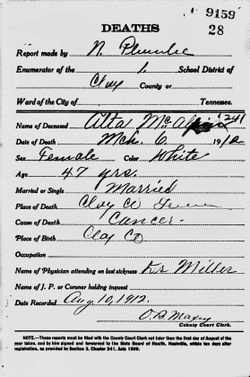 DEATHS
9159
28
Report made by N. Plumlee
Enumerator of the 1. School District of
Clay County or
Ward of the City of Tennessee.
Name of Deceased Alta Mc 241
Date of Death Mch. 6 191
Sex Female Color White
Age 47 yrs.
Married or Single Married
Place of Death Clay Co Tenn
Cause of Death Cancer
Place of Birth Clay Co
Occupation
Name of Physician attending on last sickness Dr Miller
Name of J. P. or Coroner holding inquest
Date Recorded Aug, 10, 1912.
O. B. Maxey
County Court Clerk.
NOTE.—These reports must be filed with the County Court Clerk not later than the first day of August of the
year taken, and by him signed and forwarded to the State Board of Health, Nashville, within ten days after
registration, as provided in Section 3, Chapter 341, Acts 1909.